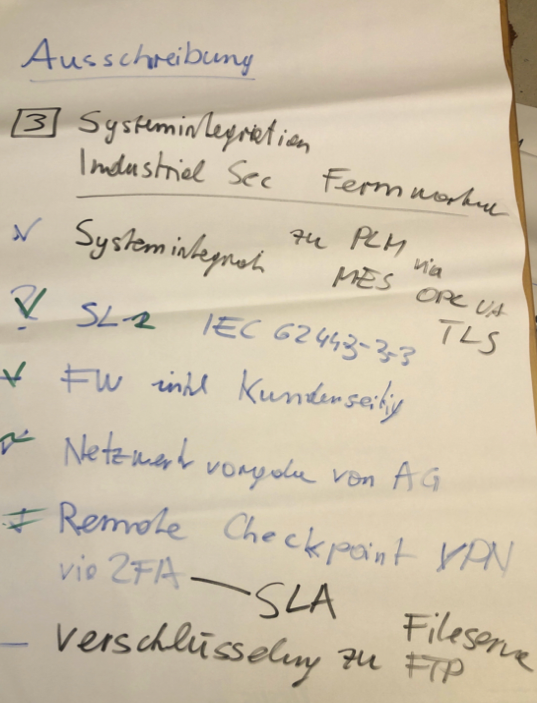 Ausschreibung
3 Systemintegration
Industrial Sec Fernwartung
Systemintegrat zu PLM
MES via
OPC UA
TLS
? SL-2 IEC 62443-3-3
FW inkl Kundenseitig
Netzwerk vorgabe von AG
Remote Checkpoint VPN
via 2FA — SLA
– Verschlüsselung zu Fileserve
FTP